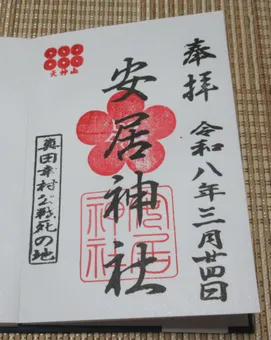 奉拝
令和八年三月廿四日
安居神社
安居神社
天神山
真田幸村公戦死の地